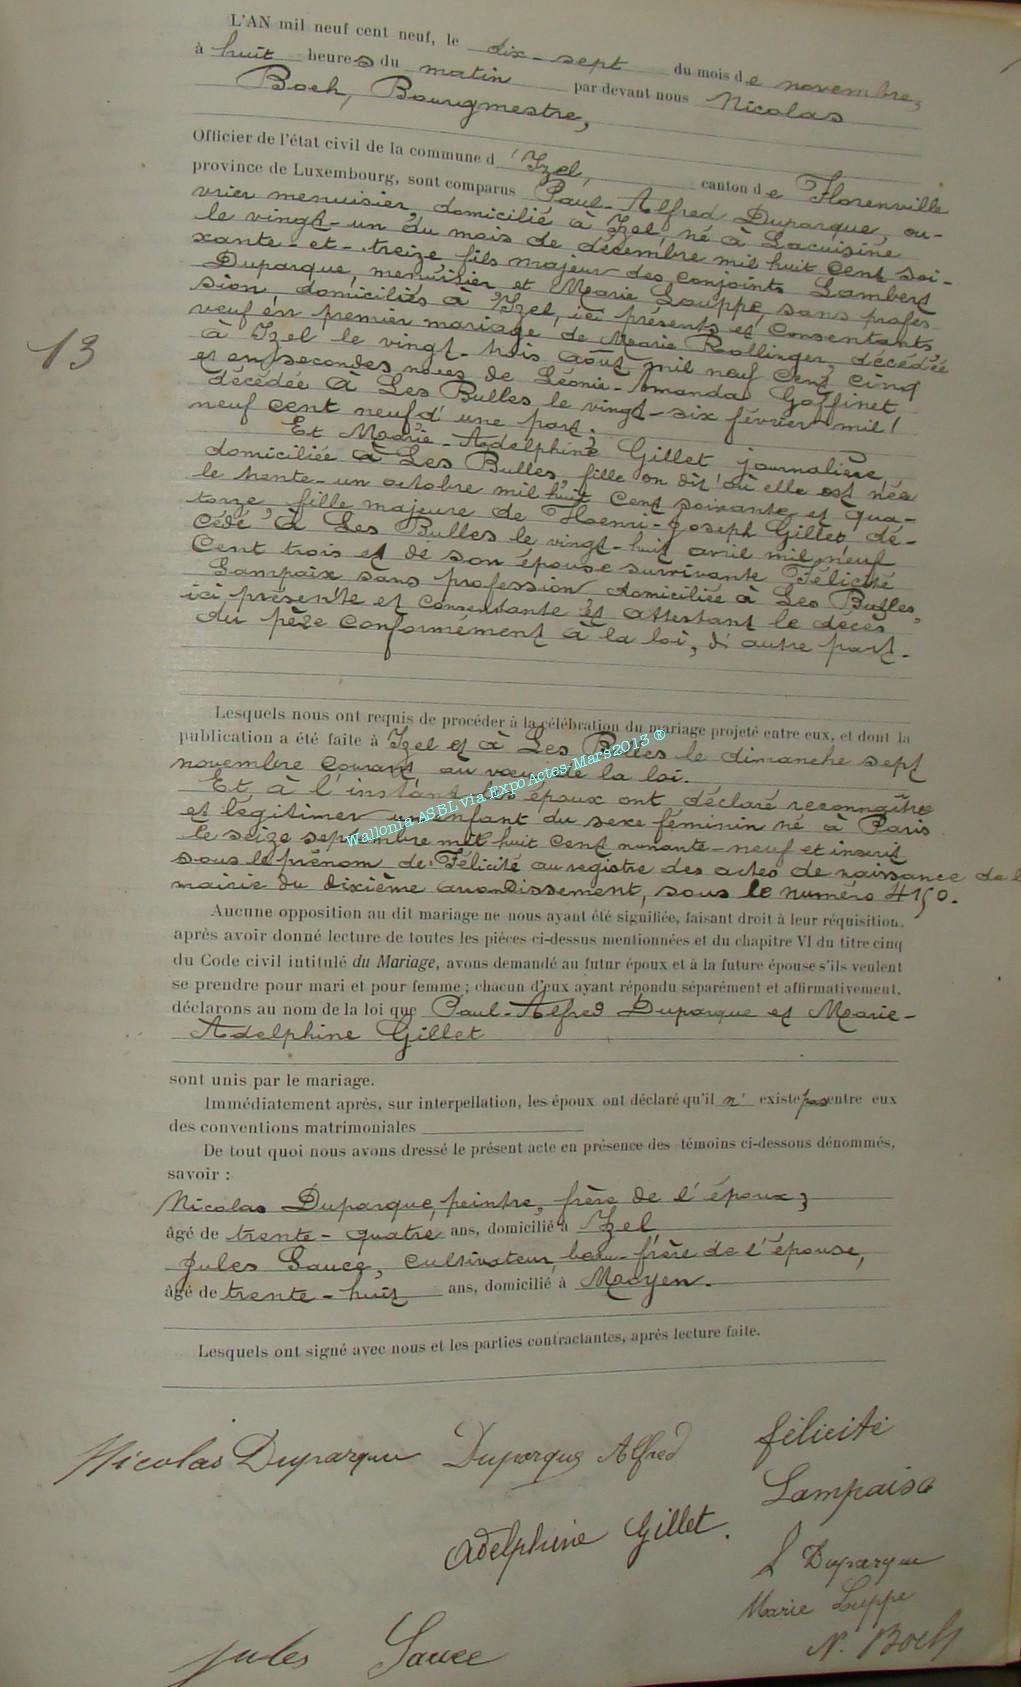 L'AN mil neuf cent neuf, le dix-sept du mois de novembre,
à huit heures du matin par devant nous Nicolas
Boch, Bourgmestre,
Officier de l'état civil de la commune d'Izel, canton de Florenville
province de Luxembourg, sont comparus Paul-Alfred Duparque, ou-
vrier menuisier, domicilié à Izel, né à Lacuisine
le vingt-un du mois de décembre mil huit cent soi-
xante-et-treize fils majeur des conjoints Lambert
Duparque, menuisier et Marie Louppe, sans profes-
sion, domiciliés à Izel, ici présents et consentants,
veuf en premier mariage de Marie Rollinger, décédée
à Izel le vingt-trois août mil neuf cent cinq
et en secondes noces de Léonie-Amanda Goffinet
décédée à Les Bulles le vingt-six février mil
neuf cent neuf d'une part;
Et Marie-Adelphine Gillet journalière,
domiciliée à Les Bulles, fille on dit où elle est née
le trente-un octobre mil huit cent soixante et qua-
torze, fille majeure de Henri-Joseph Gillet dé-
cédé à Les Bulles le vingt-huit avril mil neuf
cent trois et de son épouse survivante Félicité
Lampaix sans profession, domiciliée à Les Bulles,
ici présente et consentante et attestant le décès
du père conformément à la loi, d'autre part.
Lesquels nous ont requis de procéder à la célébration du mariage projeté entre eux, et dont la
publication a été faite à Izel et à Les Bulles le dimanche sept
novembre courant au vœu de la loi.
Et, à l'instant les époux ont déclaré reconnaître
et légitimer un enfant du sexe féminin né à Paris
le seize septembre mil huit cent nonante-neuf et inscrit
sous le prénom de Félicité au registre des actes de naissance de l
mairie du dixième arrondissement, sous le numéro 4150.
Wallonia ASBL via Expo Actes-Mars2013 ®
Aucune opposition au dit mariage ne nous ayant été signifiée, faisant droit à leur réquisition,
après avoir donné lecture de toutes les pièces ci-dessus mentionnées et du chapitre VI du titre cinq
du Code civil intitulé du Mariage, avons demandé au futur époux et à la future épouse s'ils veulent
se prendre pour mari et pour femme; chacun d'eux ayant répondu séparément et affirmativement,
déclarons au nom de la loi que Paul-Alfred Duparque et Marie-
Adelphine Gillet
sont unis par le mariage.
Immédiatement après, sur interpellation, les époux ont déclaré qu'il n' existe pas entre eux
des conventions matrimoniales
De tout quoi nous avons dressé le présent acte en présence des témoins ci-dessous dénommés,
savoir :
Nicolas Duparque, peintre, frère de l'époux,
âgé de trente-quatre ans, domicilié à Izel
Jules Sauce, cultivateur, beau-frère de l'épouse,
âgé de trente-huit ans, domicilié à Moyen.
Lesquels ont signé avec nous et les parties contractantes, après lecture faite.
13
Nicolas Duparque Duparque Alfred félicité
Lampaix
Adelphine Gillet.
L Duparque
Marie Luppe
N. Boch
Jules Sauce